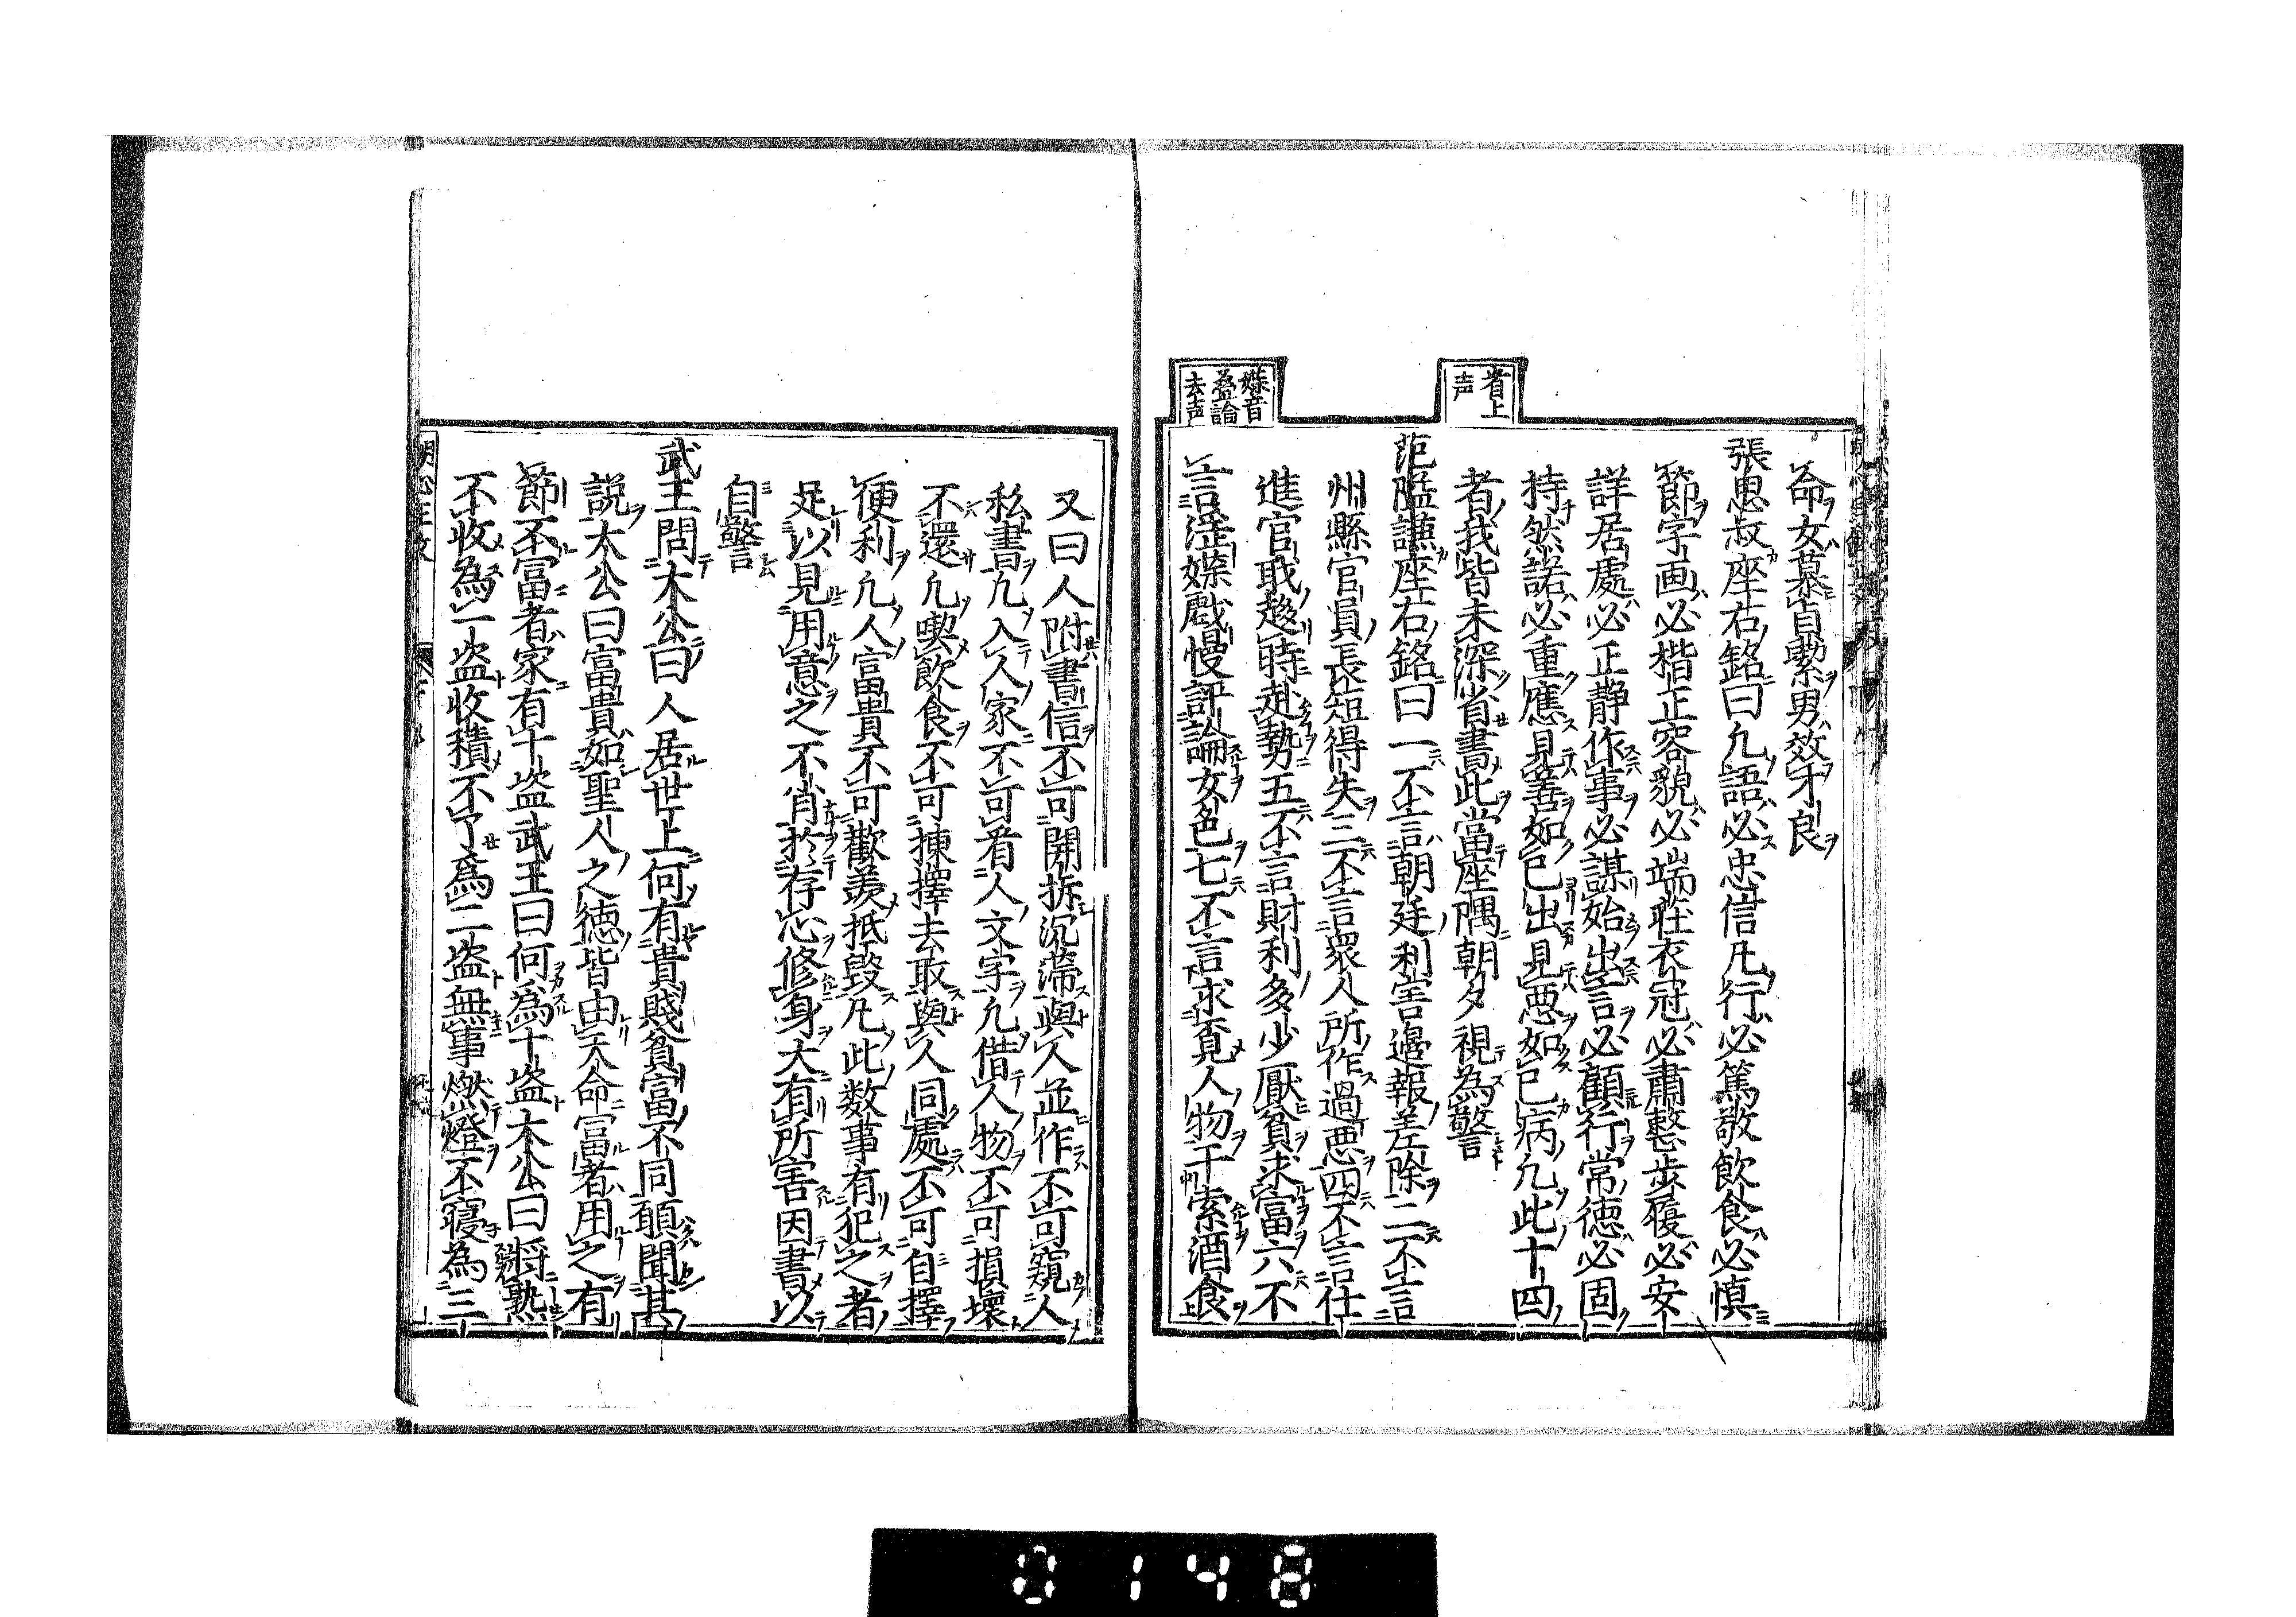 省上
声
媟音
疊論
去声
命女慕貞㓗男效才良
張思叔座右銘曰凢語必忠信凢行必篤敬飲食必慎
節字画必楷正容貌必端莊衣冠必肅整步履必安
詳居處必正静作事必謀始出言必顧行常德必固
持然諾必重應見善如已出見悪如已病凢此十四
者我皆未深省書此當座隅朝夕視為警
范謙座右銘曰一不言朝廷利害邉報差除二不言
州縣官員長短得失三不言衆人所作過悪四不言仕
進官職趍時赴勢五不言財利多少厭貧求富六不
言淫媟戲慢評論女色七不言求覓人物干索酒食
又曰人附書信不可開拆沉滯與人並作不可窺人
私書凢入人家不可看人文字凢借人物不可損壞
不還凢喫飲食不可揀擇去取與人同處不可自擇
便利凢人富貴不可歡羨抵毀凢此数事有犯之者
足以見用意之不肖於存心修身大有所害因書以
自警
武王問太公曰人居世上何有貴賤貧富不同願聞其
説太公曰富貴如聖人之徳皆由天命富者用之有
節不富者家有十盗武王曰何為十盗太公曰将熟
不收為一盗收積不了為二盗無事燃燈不寝為三